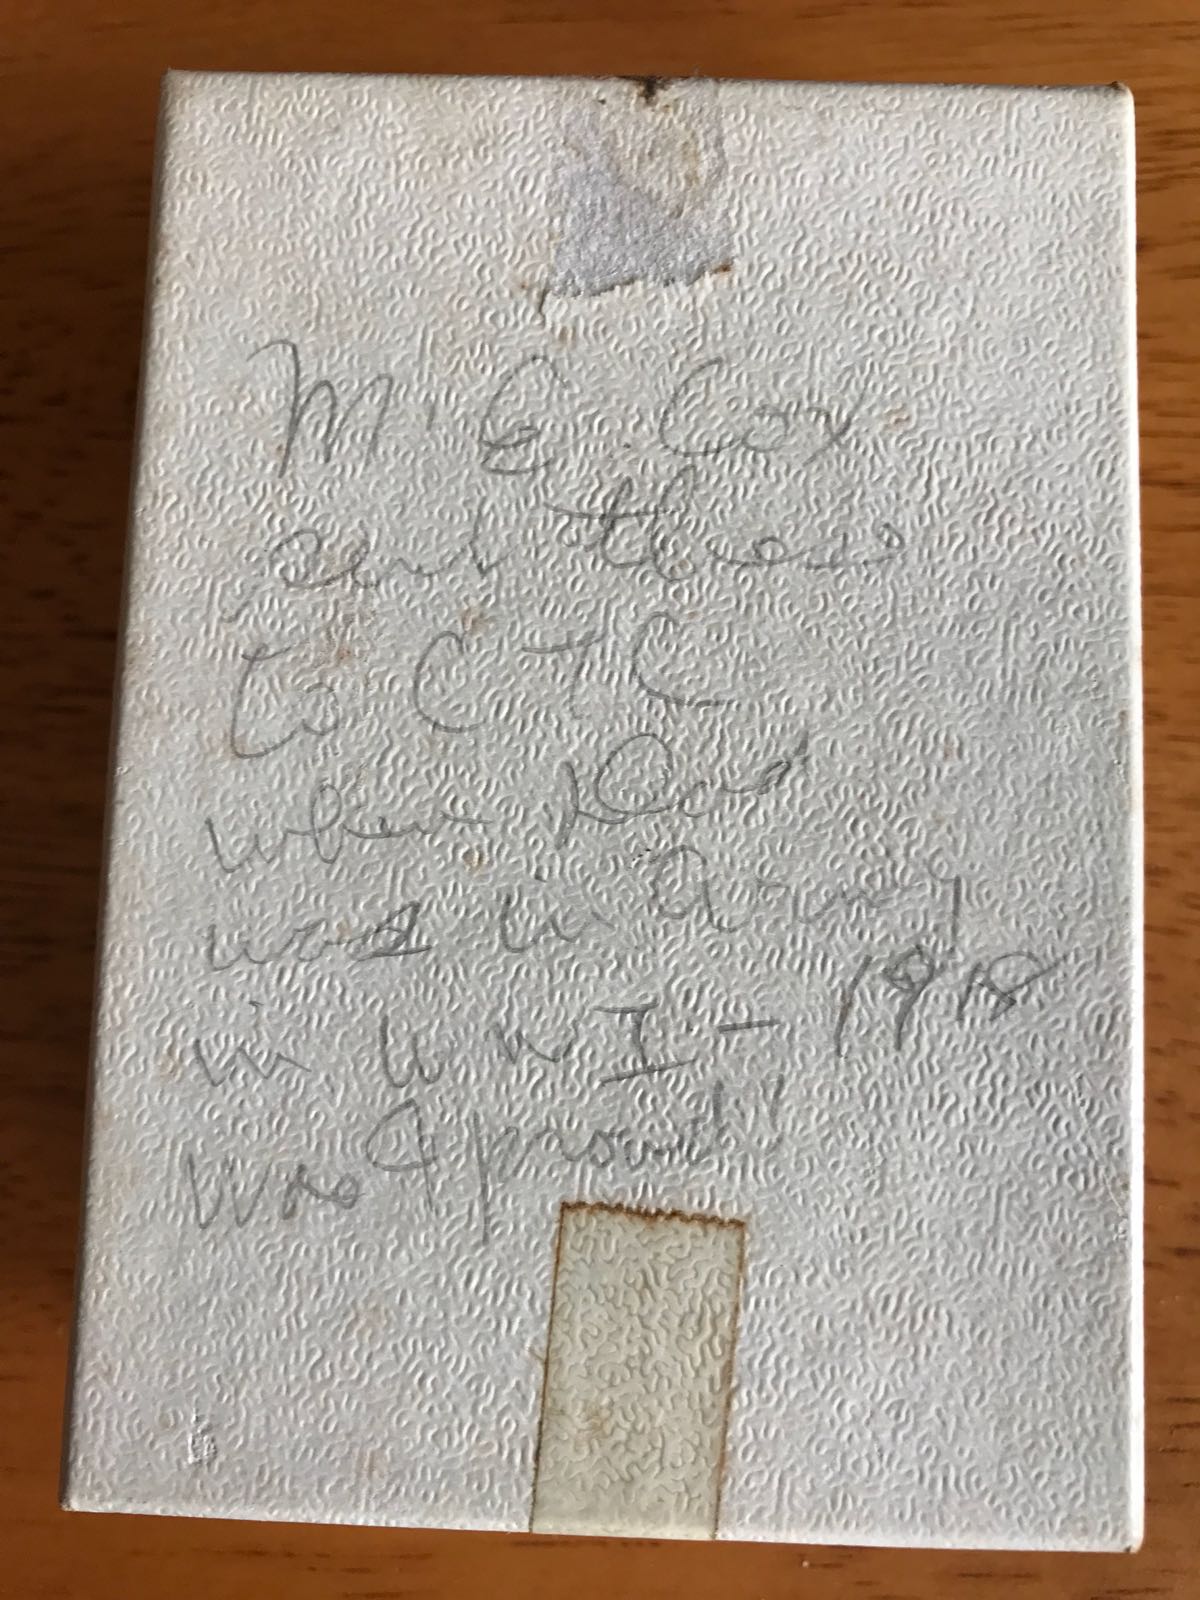 M. E. Cox
sent these
to C T C
when Dad
was in Army
in W W I - 1918
Was I proud!!